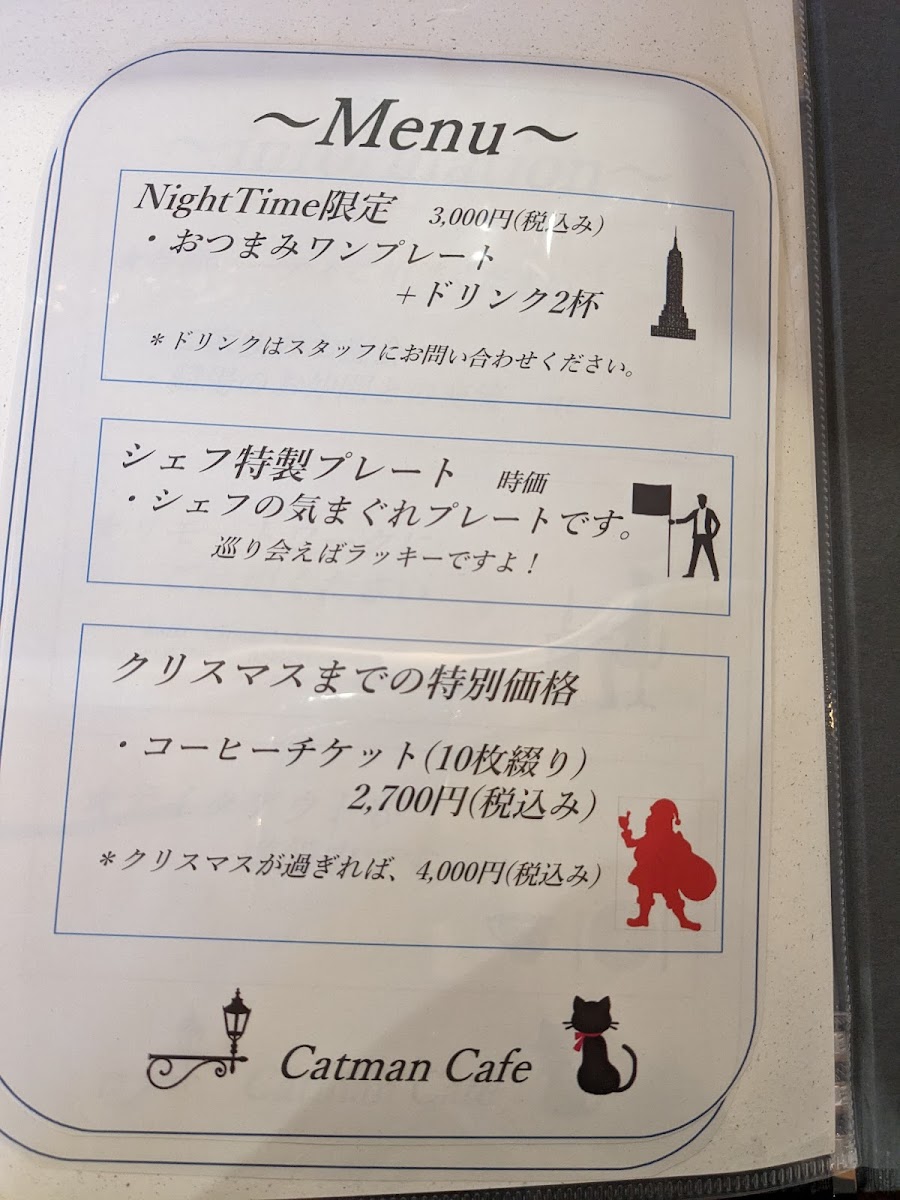 ～Menu～
NightTime限定 3,000円(税込み)
・おつまみワンプレート
+ドリンク2杯
＊ドリンクはスタッフにお問い合わせください。
シェフ特製プレート 時価
・シェフの気まぐれプレートです。
巡り会えばラッキーですよ！
クリスマスまでの特別価格
・コーヒーチケット(10枚綴り)
2,700円(税込み)
＊クリスマスが過ぎれば、4,000円(税込み)
Catman Cafe